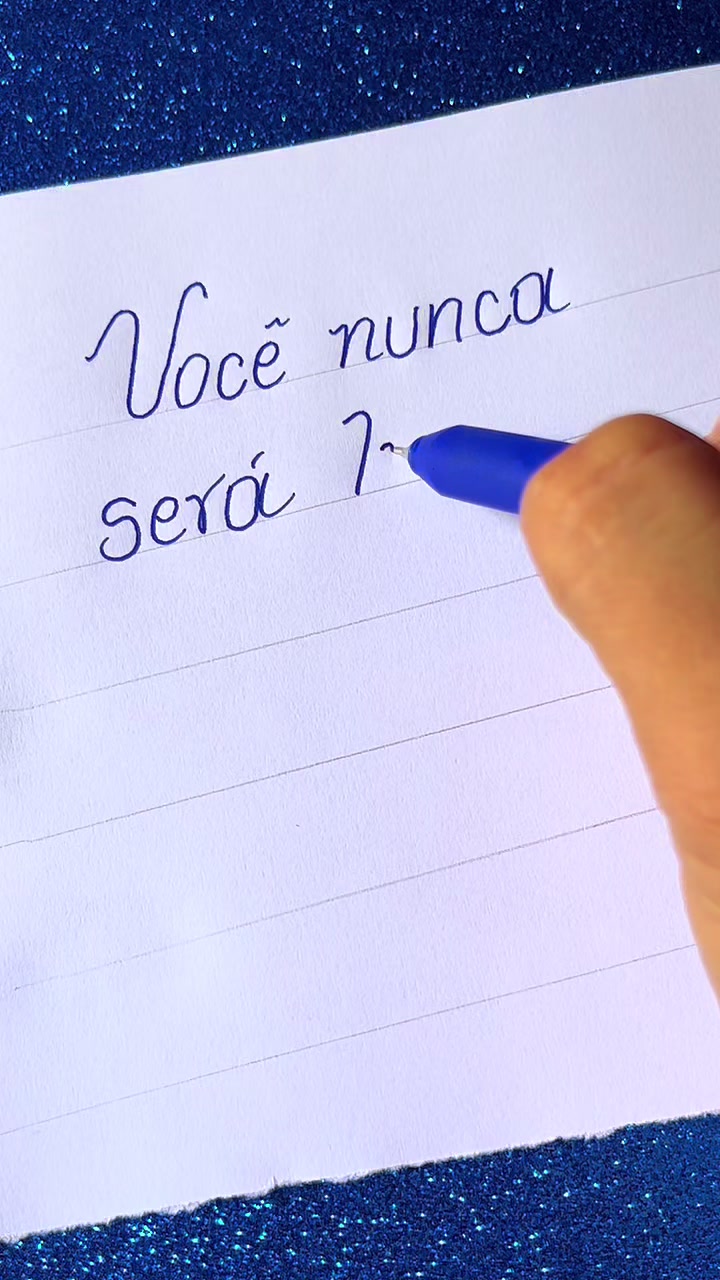 Você nunca
será